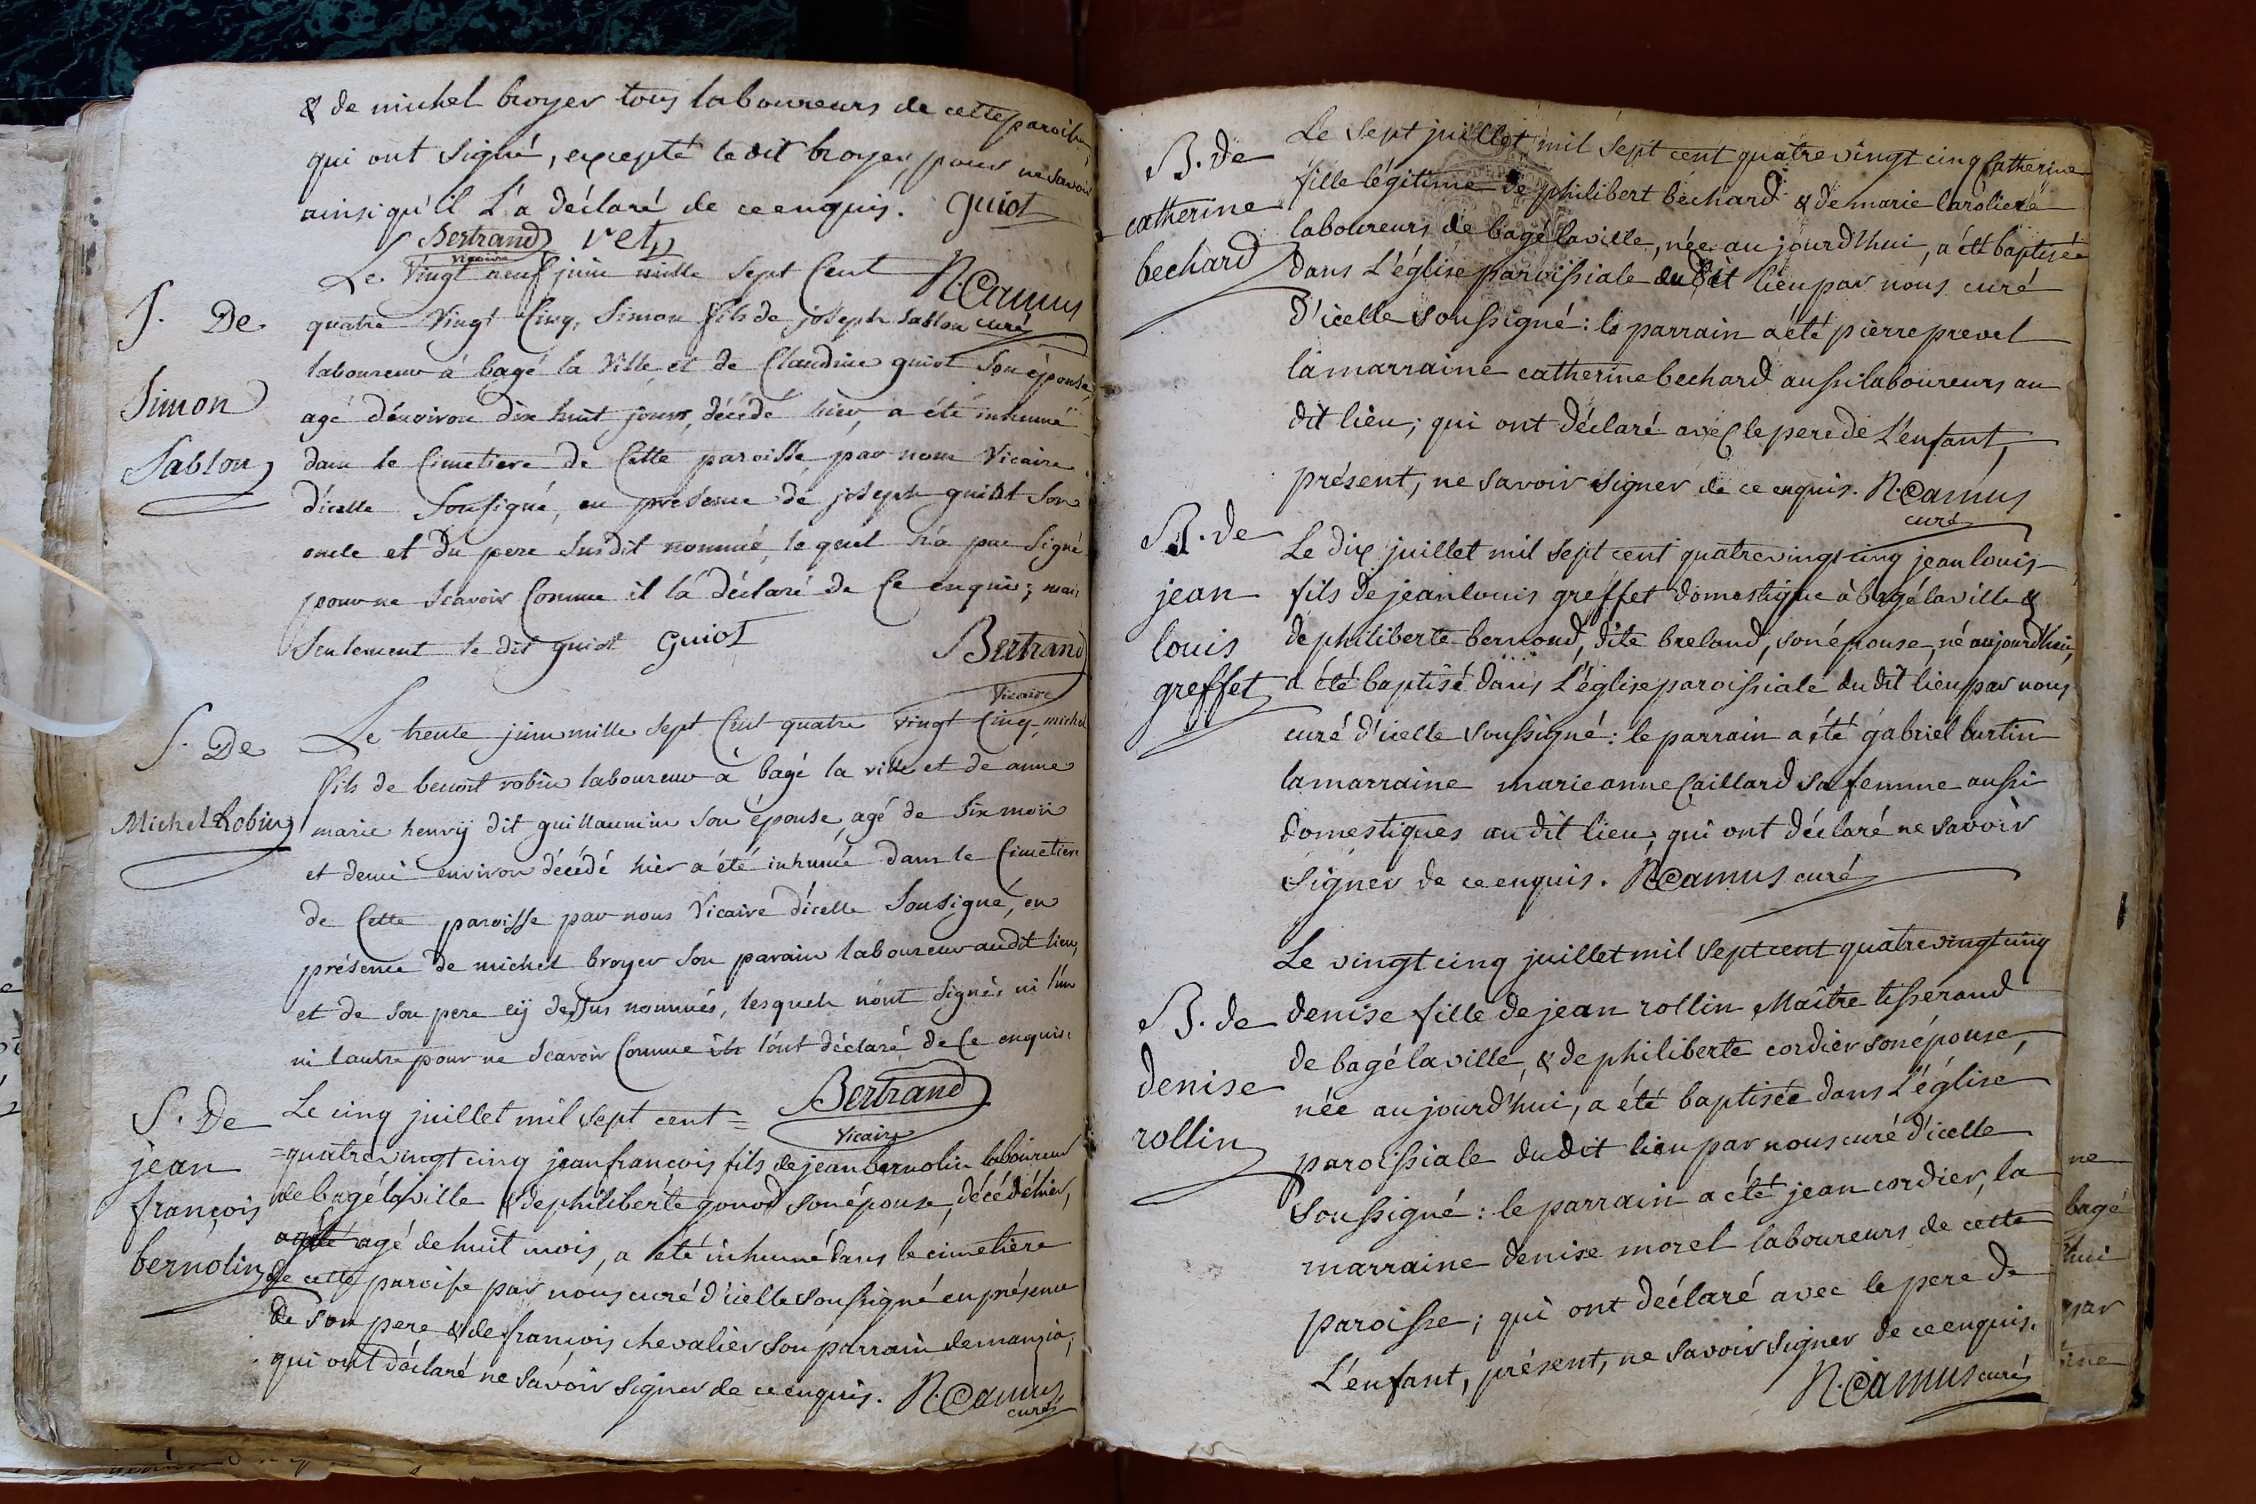 & de michel broyer tous laboureurs de cette paroisse,
qui ont signé, excepté ledit broyer, pour ne savoir
ainsi qu'il L'a déclaré de ce enquis. guiot
Bertrand vicaire
N. Camus curé
S. De
Simon
Sablon
Le vingt neuf juin mille sept Cent
quatre vingt Cinq, Simon fils de joseph sablon
laboureur à bagé la ville et de Claudine guiot son épouse,
agé d'environ dix huit jours, décédé hier, a été inhumé
dans le Cimetiere de Cette paroisse par nous Vicaire
d'icelle Sousigné, en présence de joseph guiot son
oncle et du pere susdit nommé, le quel n'a pas signé
pour ne scavoir Comme il l'a déclaré de Ce enquis; mais
seulement le dit guiot Guiot
Bertrand
Vicaire
S. De
Michel Robin
Le trente juin mille sept Cent quatre vingt Cinq, michel
fils de benoit robin laboureur à bagé la ville et de anne
marie henrÿ dit guillaumin son épouse, agé de six mois
et demi environ décédé hier a été inhumé dans le Cimetiere
de Cette paroisse par nous Vicaire d'icelle Sousigné, en
présence de michel broyer son parain laboureur audit lieu,
et de son pere cÿ dessus nommés, lesquels n'ont signés ni l'un
ni lautre pour ne scavoir Comme ils l'ont déclaré de Ce enquis.
Bertrand
Vicaire
S. De
jean
françois
bernolin
Le cinq juillet mil sept cent =
= quatre vingt cinq jean françois fils de jean bernolin laboureur
de bagé la ville & de philiberte gonod son épouse, décédé hier,
agé de huit mois, a été inhumé dans le cimetière
de cette paroisse par nous curé d'icelle soussigné en présence
de son pere & de françois chevalier son parrain de manzia,
qui ont déclaré ne savoir signer de ce enquis. N. Camus
curé
B. de
catherine
bechard
Le sept juillet mil sept cent quatre vingt cinq catherine
fille légitime de philibert bechard & de marie
laboureurs de bagé la ville, née aujourd'hui, a été baptisée
dans L'église paroissiale du dit lieu par nous curé
d'icelle soussigné: le parrain a été pierre prevel
la marraine catherine bechard aussi laboureurs au
dit lieu; qui ont déclaré avec le pere de L'enfant,
présent, ne savoir signer de ce enquis. N. Camus
curé
B. de
jean
louis
greffet
Le dix juillet mil sept cent quatre vingt cinq jean louis
fils de jean louis greffet domestique à bagé la ville &
de philiberte bernoud, dite breland, son épouse, né aujourd'hui,
a été baptisé dans L'église paroissiale du dit lieu par nous
curé d'icelle soussigné: le parrain a été gabriel burtin
la marraine marie anne Caillard sa femme aussi
domestiques au dit lieu; qui ont déclaré ne savoir
signer de ce enquis. N. Camus curé
B. de
denise
rollin
Le vingt cinq juillet mil sept cent quatre vingt cinq
denise fille de jean rollin Maître tisserand
de bagé la ville, & de philiberte cordier son épouse,
née aujourd'hui, a été baptisée dans L'église
paroissiale du dit lieu par nous curé d'icelle
soussigné: le parrain a été jean cordier, la
marraine denise morel laboureurs de cette
paroisse; qui ont déclaré avec le pere de
L'enfant, présent, ne savoir signer de ce enquis.
N. Camus curé
ne
bagé
hui
par